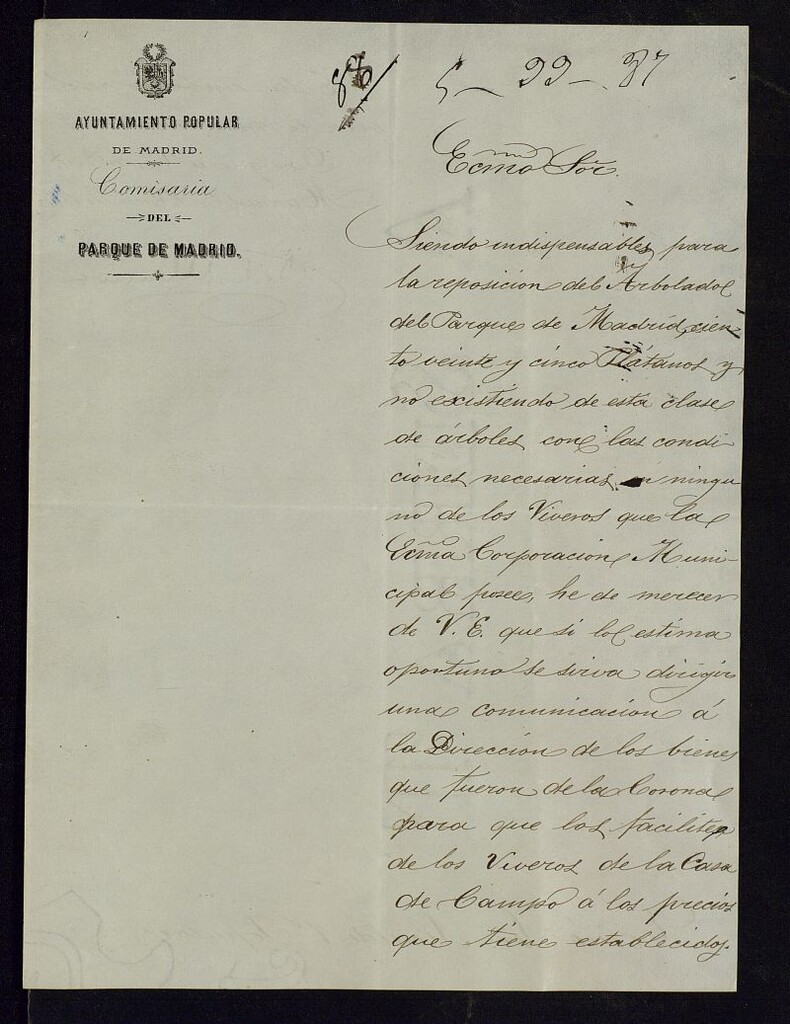 88/
5 - 99 - 87
AYUNTAMIENTO POPULAR
DE MADRID.
Comisaria
DEL
PARQUE DE MADRID.
Ecmo Sor.
Siendo indispensables para
la reposicion del Arbolado
del Parque de Madrid, cien
to veinte y cinco Plátanos y
no existiendo de esta clase
de árboles con las condi
ciones necesarias en ningu
no de los Viveros que la
Ecma Corporacion Muni-
cipal posee, he de merecer
de V. E. que si lo estima
oportuno se sirva dirigir
una comunicacion á
la Direccion de los bienes
que fueron de la Corona
para que los facilite
de los Viveros de la Casa
de Campo á los precios
que tiene establecidos.